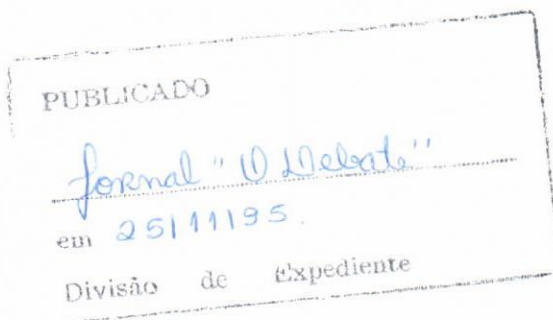 PUBLICADO
Jornal "O Debate"
em 25/11/95.
Divisão de Expediente